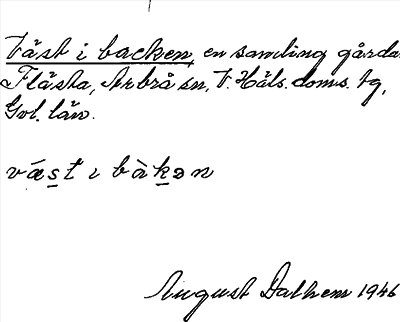 Väst i backen, en samling gårdar
Flästa, Arbrå sn, V. Häls. doms. tg,
Gvl. län.
väst ı bàkən
August Dalhem 1946